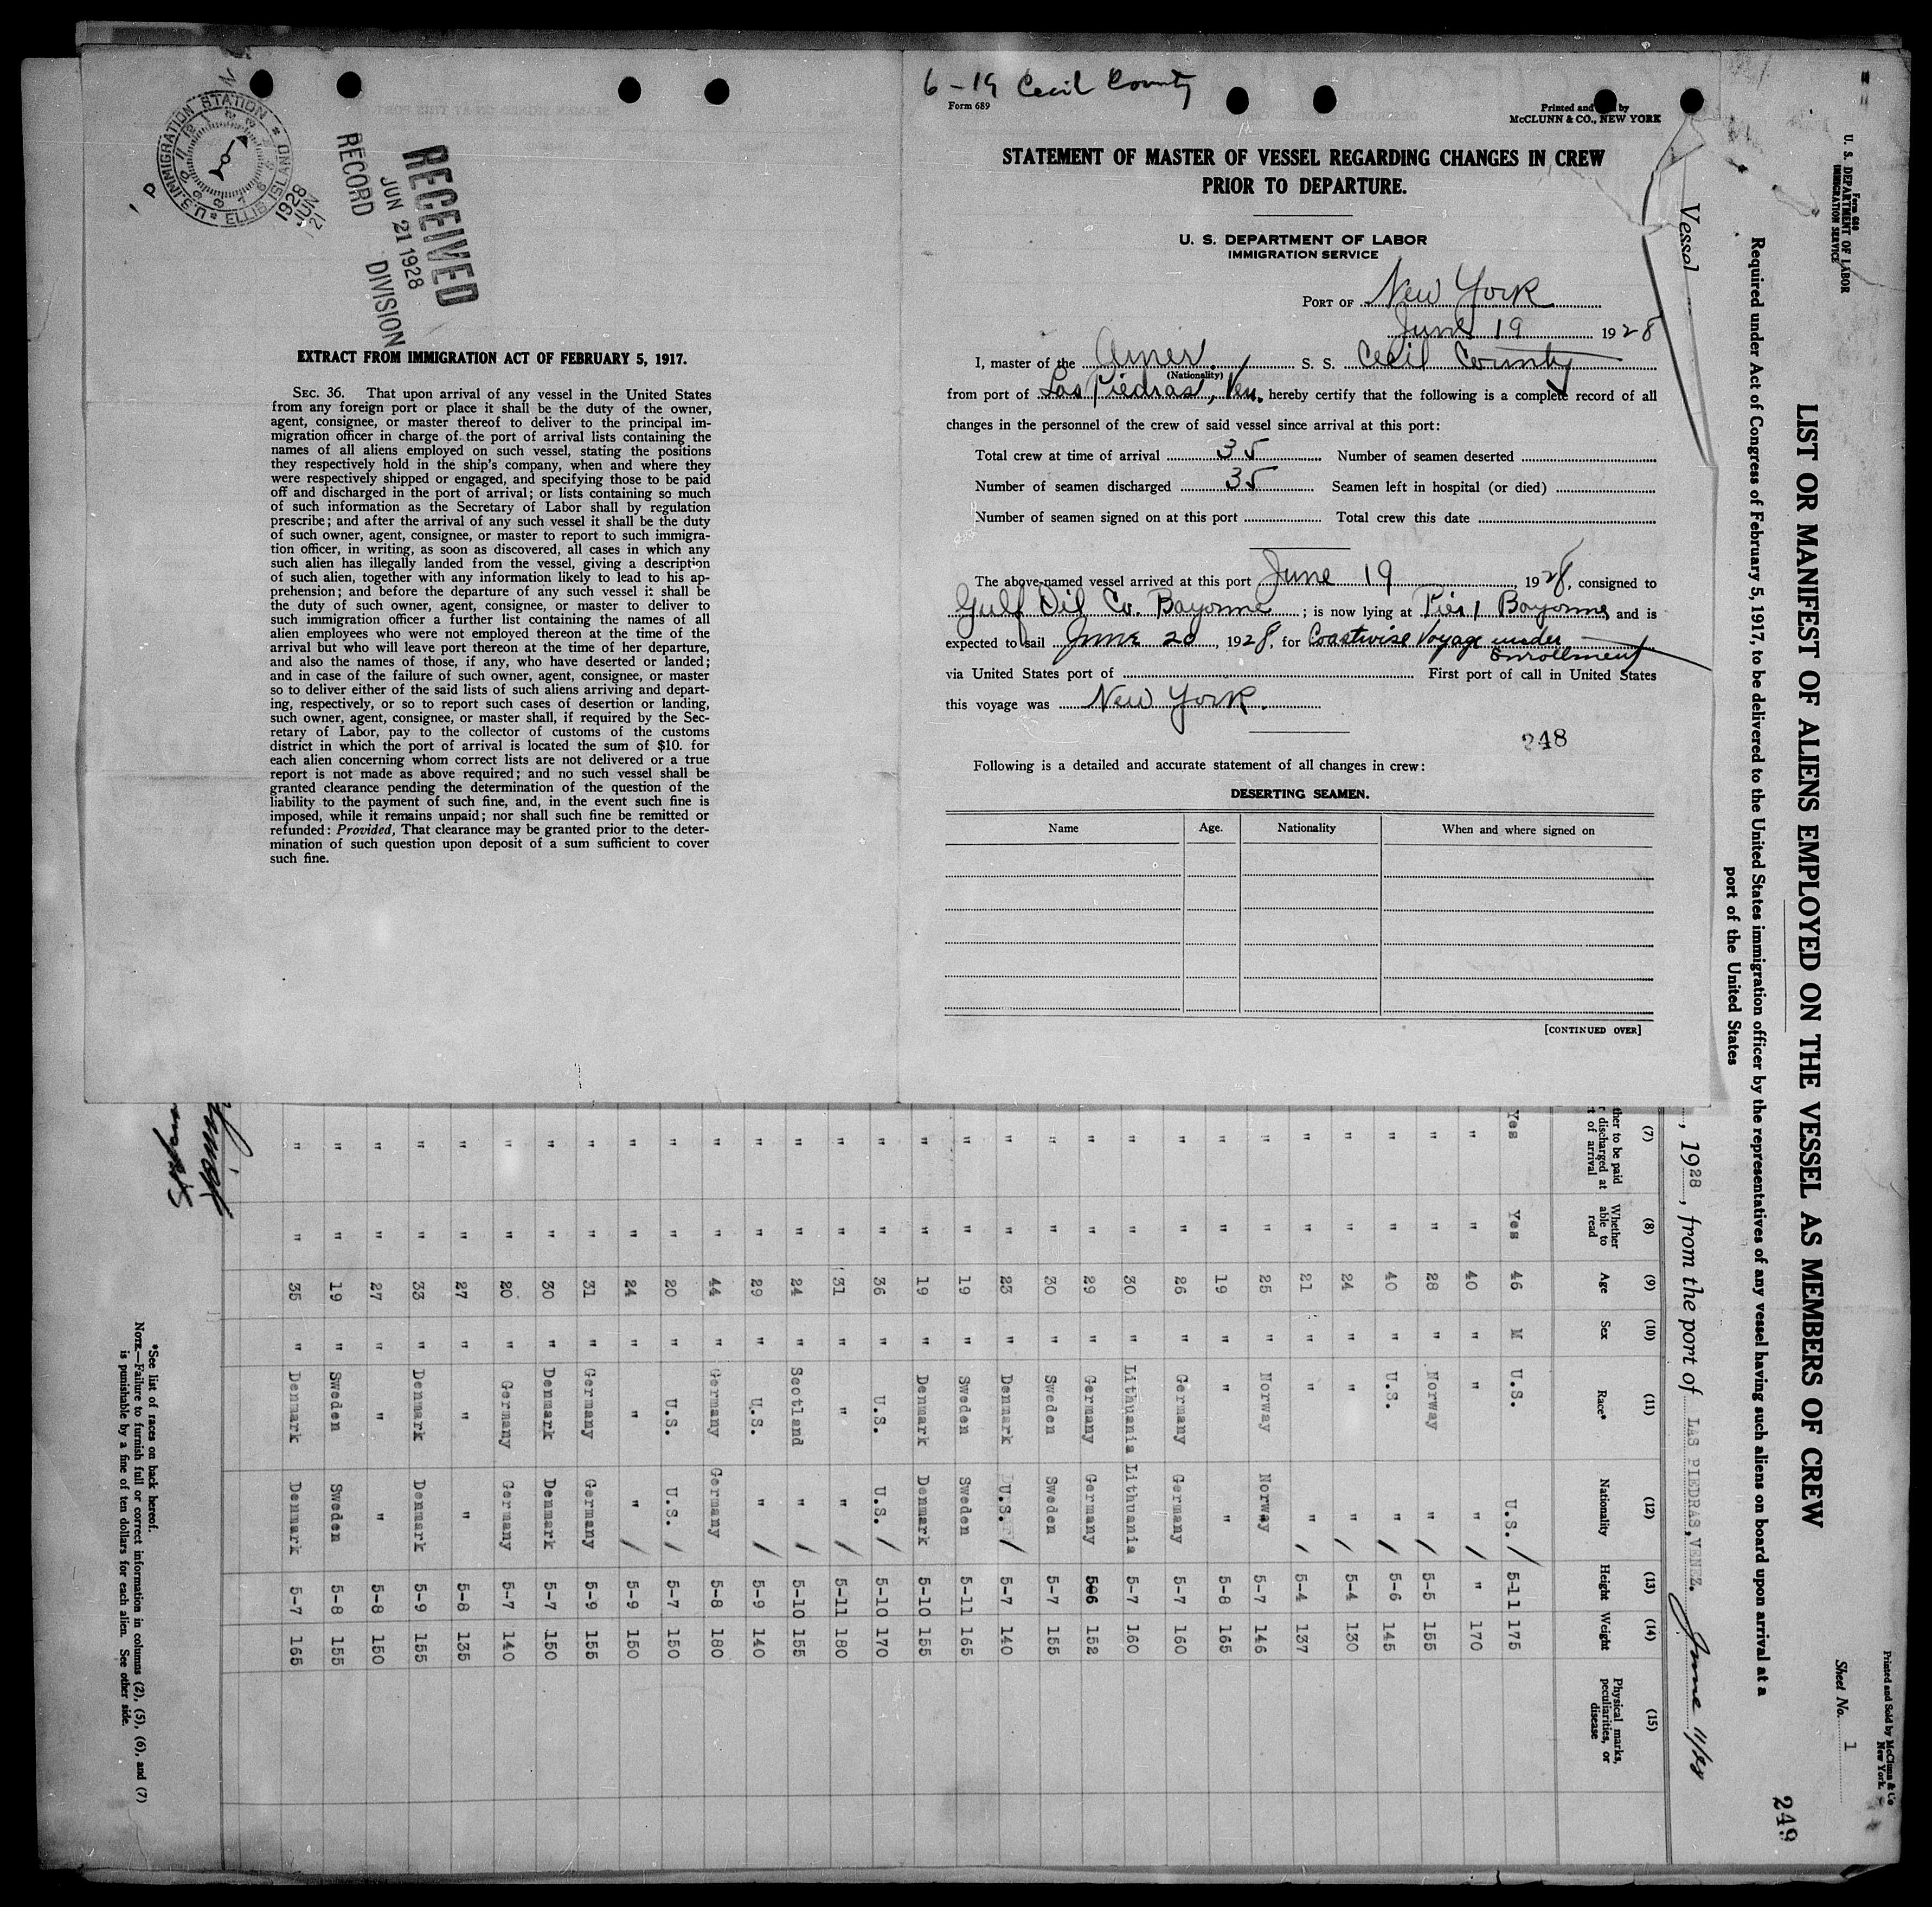 6-19 Cecil County
Form 689
Printed and by
McCLUNN & CO., NEW YORK
STATEMENT OF MASTER OF VESSEL REGARDING CHANGES IN CREW
PRIOR TO DEPARTURE.
U. S. DEPARTMENT OF LABOR
IMMIGRATION SERVICE
PORT OF New York
June 19 1928
I, master of the Amer. S. S. Cecil County
(Nationality)
from port of Las Piedras, Ven. hereby certify that the following is a complete record of all
changes in the personnel of the crew of said vessel since arrival at this port:
Total crew at time of arrival 35 Number of seamen deserted
Number of seamen discharged 35 Seamen left in hospital (or died)
Number of seamen signed on at this port Total crew this date
The above-named vessel arrived at this port June 19 1928, consigned to
Gulf Oil Co. Bayonne ; is now lying at Pier 1 Bayonne and is
expected to sail June 20, 1928, for Coastwise Voyage under
Enrollment
via United States port of First port of call in United States
this voyage was New York.
248
Following is a detailed and accurate statement of all changes in crew:
DESERTING SEAMEN.
Name Age. Nationality When and where signed on
[CONTINUED OVER]
U.S. IMMIGRATION STATION * ELLIS ISLAND *
1928
JUN
21
P
RECEIVED
JUN 21 1928
RECORD DIVISION
EXTRACT FROM IMMIGRATION ACT OF FEBRUARY 5, 1917.
SEC. 36. That upon arrival of any vessel in the United States
from any foreign port or place it shall be the duty of the owner,
agent, consignee, or master thereof to deliver to the principal im-
migration officer in charge of the port of arrival lists containing the
names of all aliens employed on such vessel, stating the positions
they respectively hold in the ship's company, when and where they
were respectively shipped or engaged, and specifying those to be paid
off and discharged in the port of arrival; or lists containing so much
of such information as the Secretary of Labor shall by regulation
prescribe; and after the arrival of any such vessel it shall be the duty
of such owner, agent, consignee, or master to report to such immigra-
tion officer, in writing, as soon as discovered, all cases in which any
such alien has illegally landed from the vessel, giving a description
of such alien, together with any information likely to lead to his ap-
prehension; and before the departure of any such vessel it shall be
the duty of such owner, agent, consignee, or master to deliver to
such immigration officer a further list containing the names of all
alien employees who were not employed thereon at the time of the
arrival but who will leave port thereon at the time of her departure,
and also the names of those, if any, who have deserted or landed;
and in case of the failure of such owner, agent, consignee, or master
so to deliver either of the said lists of such aliens arriving and depart-
ing, respectively, or so to report such cases of desertion or landing,
such owner, agent, consignee, or master shall, if required by the Sec-
retary of Labor, pay to the collector of customs of the customs
district in which the port of arrival is located the sum of $10. for
each alien concerning whom correct lists are not delivered or a true
report is not made as above required; and no such vessel shall be
granted clearance pending the determination of the question of the
liability to the payment of such fine, and, in the event such fine is
imposed, while it remains unpaid; nor shall such fine be remitted or
refunded: Provided, That clearance may be granted prior to the deter-
mination of such question upon deposit of a sum sufficient to cover
such fine.
Form 680
U. S. DEPARTMENT OF LABOR
IMMIGRATION SERVICE
Printed and Sold by McClunn & Co
New York.
Sheet No. 1
249
LIST OR MANIFEST OF ALIENS EMPLOYED ON THE VESSEL AS MEMBERS OF CREW
Required under Act of Congress of February 5, 1917, to be delivered to the United States immigration officer by the representatives of any vessel having such aliens on board upon arrival at a
port of the United States
Vessel , 1928, from the port of LAS PIEDRAS, VENEZ. June 11/28
(7) (8) (9) (10) (11) (12) (13) (14) (15)
ther to be paid discharged at of arrival Whether able to read Age Sex Race* Nationality Height Weight Physical marks, peculiarities, or disease
Yes Yes 46 M U.S. U.S. / 5-11 175
" " 40 " " " / " 170
" " 28 " Norway " / 5-5 155
" " 40 " U.S. " / 5-6 145
" " 24 " " " / 5-4 130
" " 21 " " " / 5-4 137
" " 25 " Norway Norway 5-7 146
" " 19 " " " 5-8 165
" " 26 " Germany Germany 5-7 160
" " 30 " Lithuania Lithuania 5-7 160
" " 29 " Germany Germany 506 152
" " 30 " Sweden Sweden 5-7 155
" " 23 " Denmark U.S. / 5-7 140
" " 19 " Sweden Sweden 5-11 165
" " 19 " Denmark Denmark 5-10 155
" " 36 " U.S. U.S. / 5-10 170
" " 31 " " " / 5-11 180
" " 24 " Scotland " / 5-10 155
" " 29 " U.S. " / 5-9 140
" " 44 " Germany Germany 5-8 180
" " 20 " U.S. U.S. / 5-7 150
" " 24 " " " / 5-9 150
" " 31 " Germany Germany 5-9 155
" " 30 " Denmark Denmark 5-7 150
" " 20 " Germany Germany 5-7 140
" " 27 " " " 5-8 135
" " 33 " Denmark Denmark 5-9 155
" " 27 " " " 5-8 150
" " 19 " Sweden Sweden 5-8 155
" " 35 " Denmark Denmark 5-7 165
*See list of races on back hereof.
NOTE.—Failure to furnish full or correct information in columns (2), (5), (6), and (7)
is punishable by a fine of ten dollars for each alien. See other side.